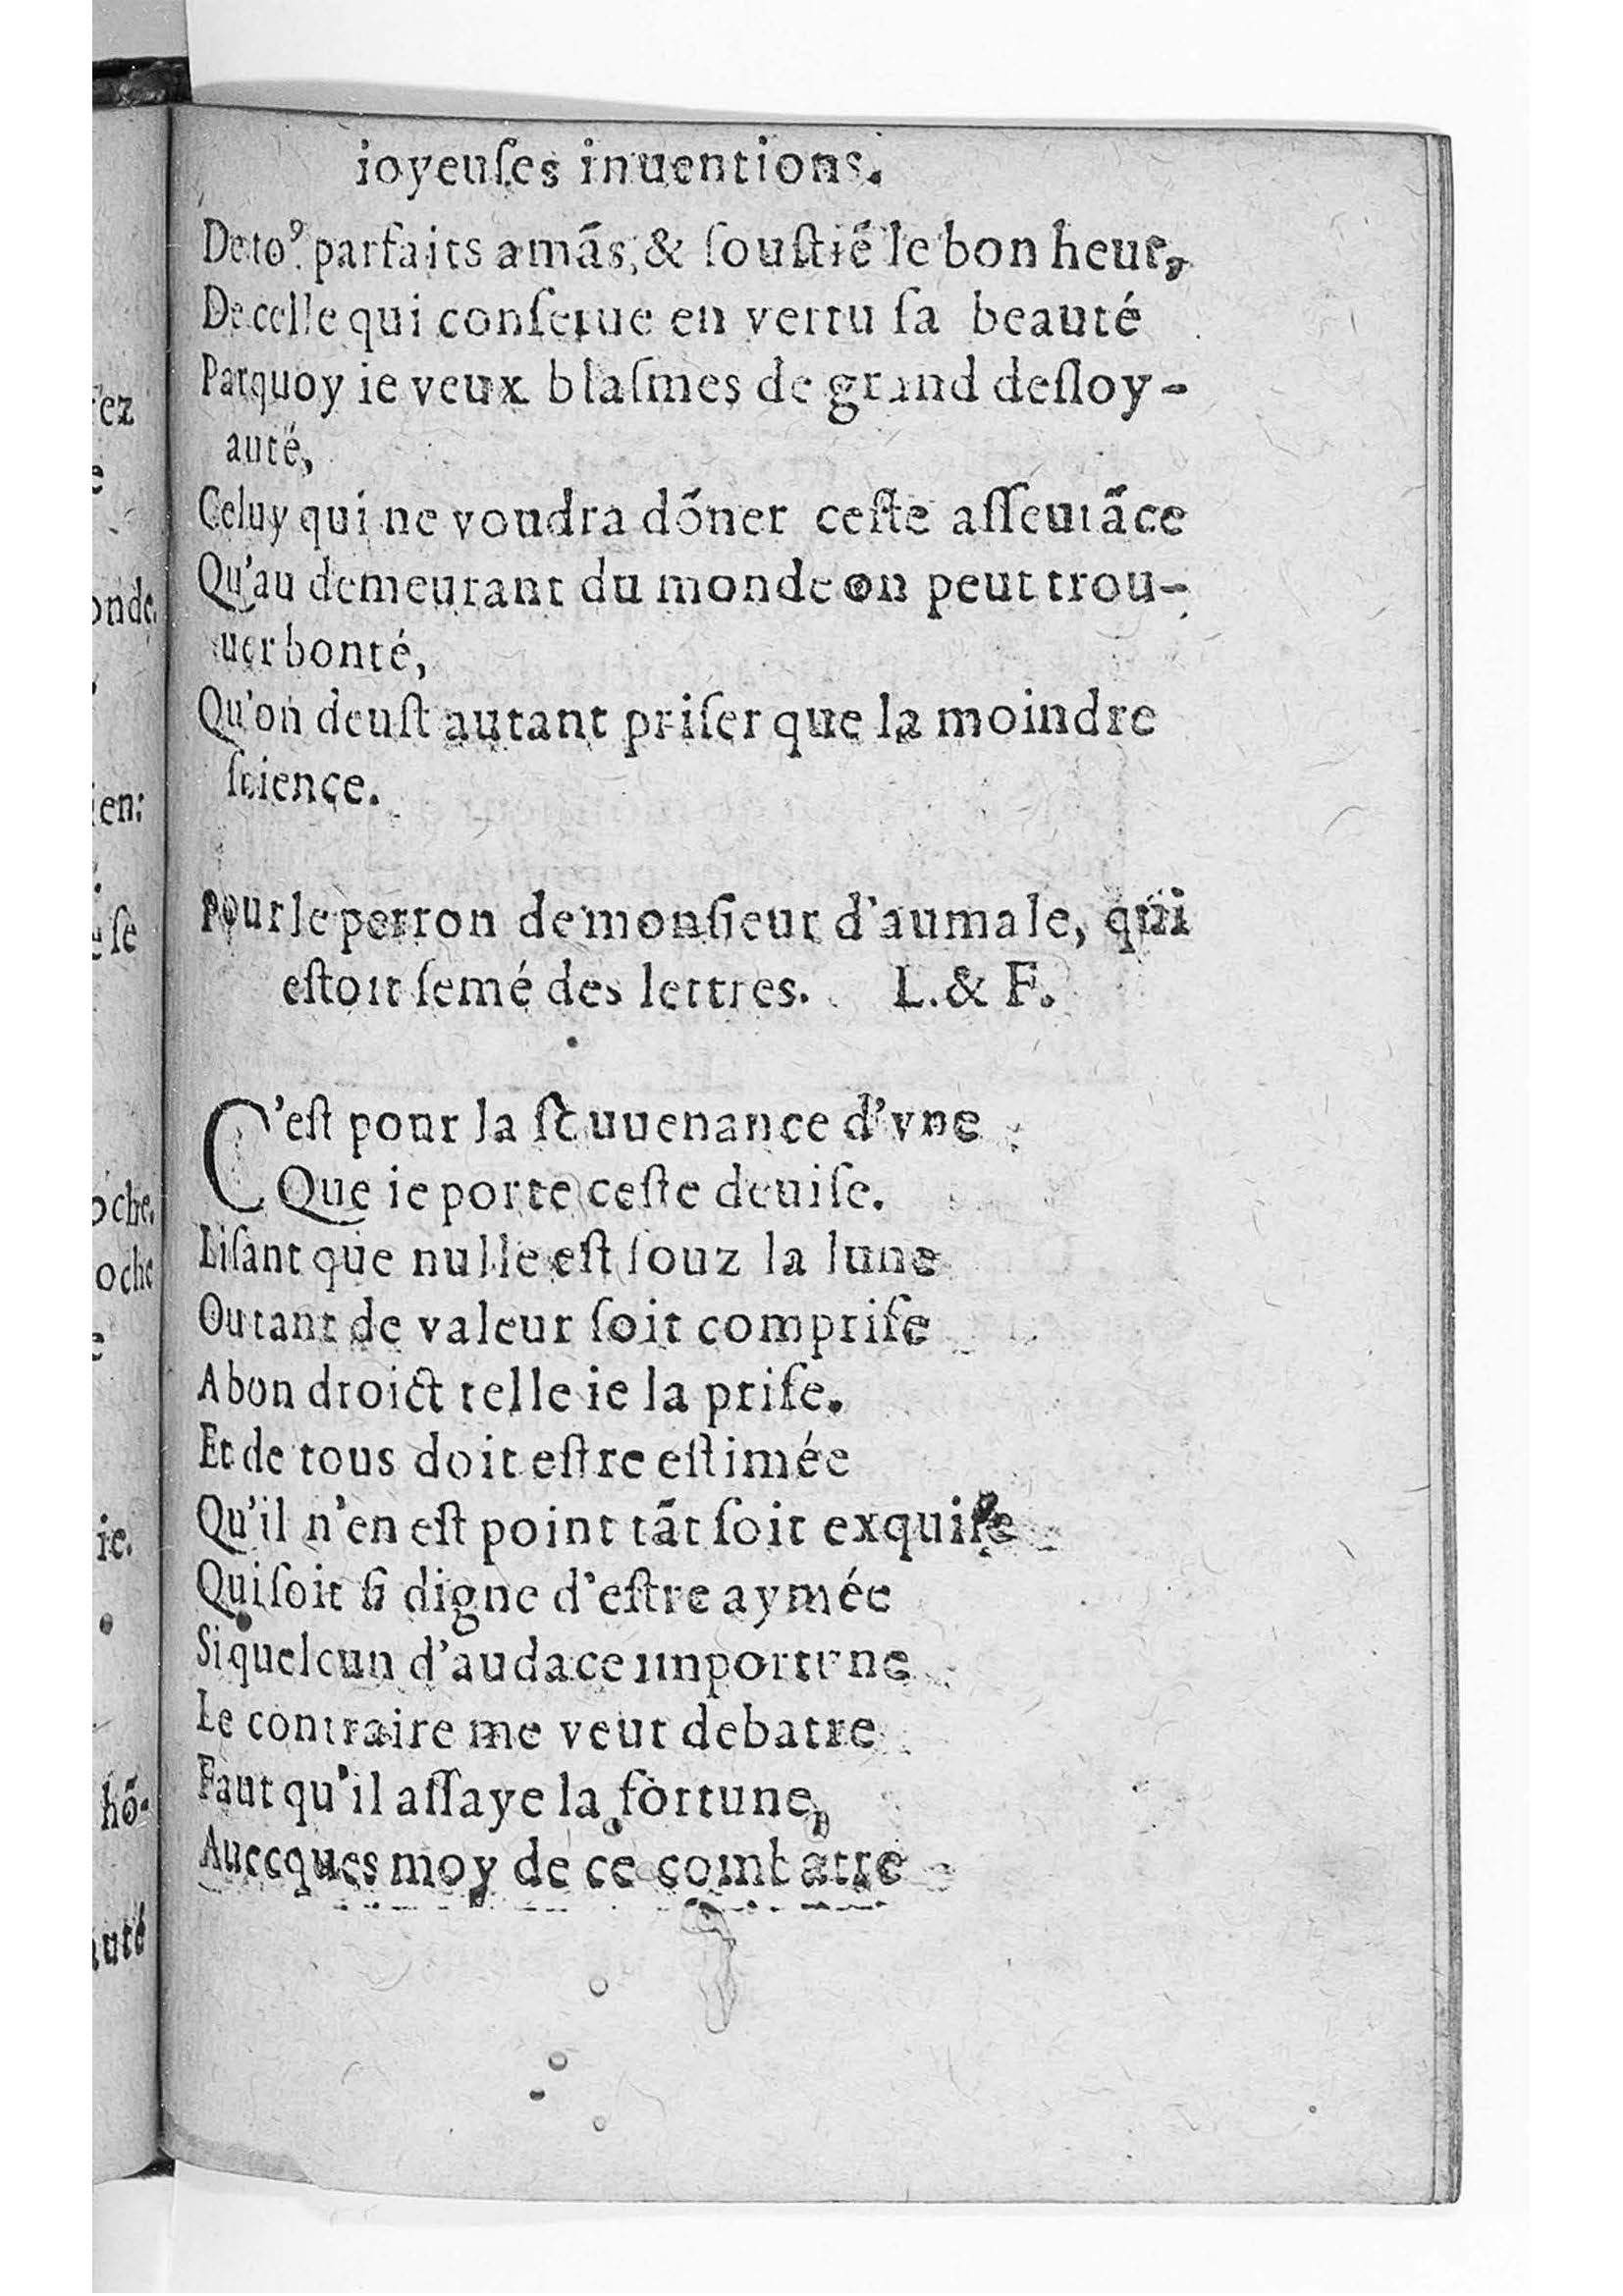 ioyeuſes inuentions.
De toꝰ parfaits amãs, & ſouſtiẽ le bon heur,
De celle qui conſerue en vertu ſa beauté
Parquoy ie veux blaſmes de grand deſloy-
auté,
Celuy qui ne voudra dõner ceſte aſſeurãce
Qu'au demeurant du monde on peut trou-
uer bonté,
Qu'on deuſt autant priſer que la moindre
ſcience.
Pour le perron de monſieur d'aumale, qui
eſtoit ſemé des lettres. L. & F.
C'eſt pour la ſouuenance d'vne
Que ie porte ceſte deuiſe.
Liſant que nulle eſt ſouz la lune
Ou tant de valeur ſoit compriſe
A bon droict telle ie la priſe.
Et de tous doit eſtre eſtimée
Qu'il n'en eſt point tãt ſoit exquiſe
Qui ſoit ſi digne d'eſtre aymée
Si quelcun d'audace importune
Le contraire me veut debatre
Faut qu'il aſſaye la fortune,
Auecques moy de ce combatre